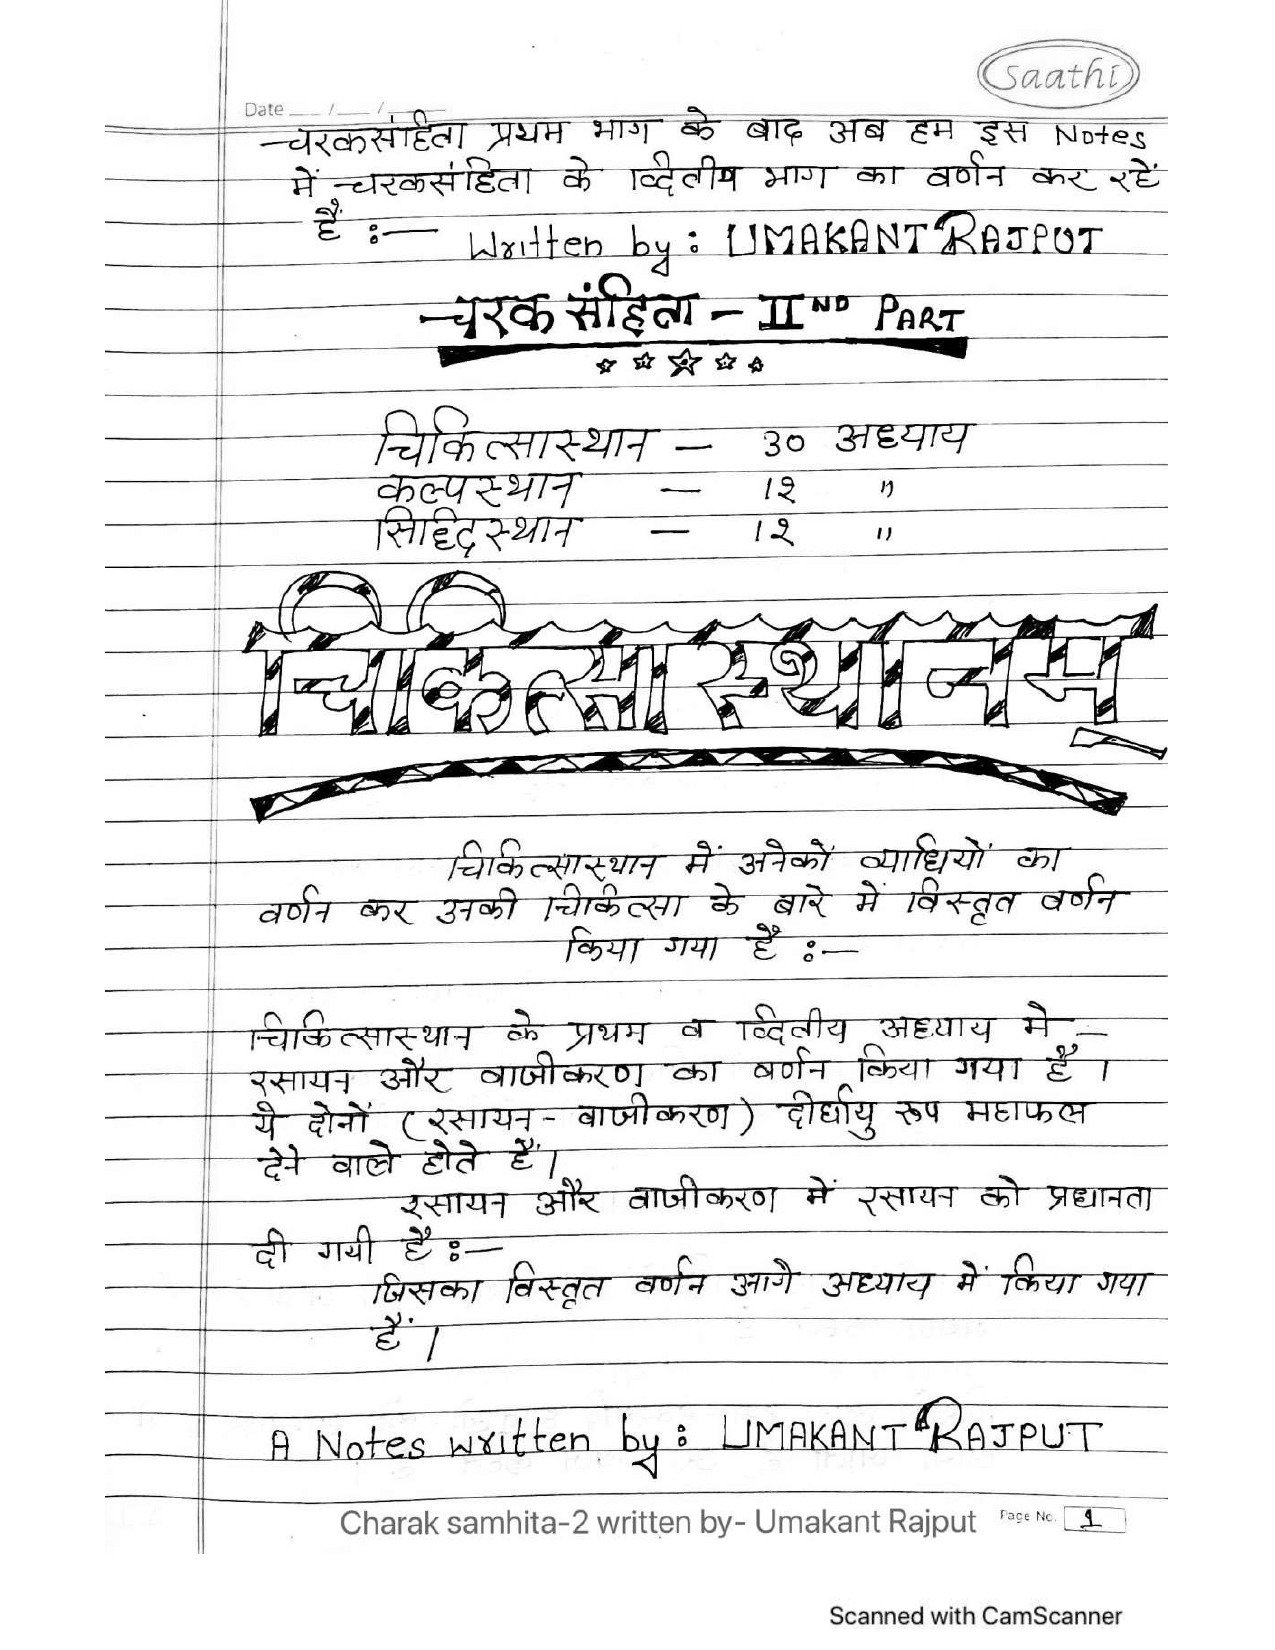 Saathi
Date __/__/____
चरकसंहिता प्रथम भाग के बाद अब हम इस Notes
में चरकसंहिता के द्वितीय भाग का वर्णन कर रहें
हैं :—
Written by : UMAKANT RAJPUT
चरक संहिता - II ND PART
चिकित्सास्थान — 30 अध्याय
कल्पस्थान — 12 "
सिद्धिस्थान — 12 "
चिकित्सास्थानम्
चिकित्सास्थान में अनेकों व्याधियों का
वर्णन कर उनकी चिकित्सा के बारे में विस्तृत वर्णन
किया गया है :—
चिकित्सास्थान के प्रथम व द्वितीय अध्याय मे —
रसायन और वाजीकरण का वर्णन किया गया है ।
ये दोनों ( रसायन - वाजीकरण ) दीर्घायु रूप महाफल
देने वाले होते हैं ।
रसायन और वाजीकरण में रसायन को प्रधानता
दी गयी है :—
जिसका विस्तृत वर्णन आगे अध्याय में किया गया
हैं ।
A Notes written by : UMAKANT RAJPUT
Charak samhita-2 written by- Umakant Rajput Page No. 1
Scanned with CamScanner